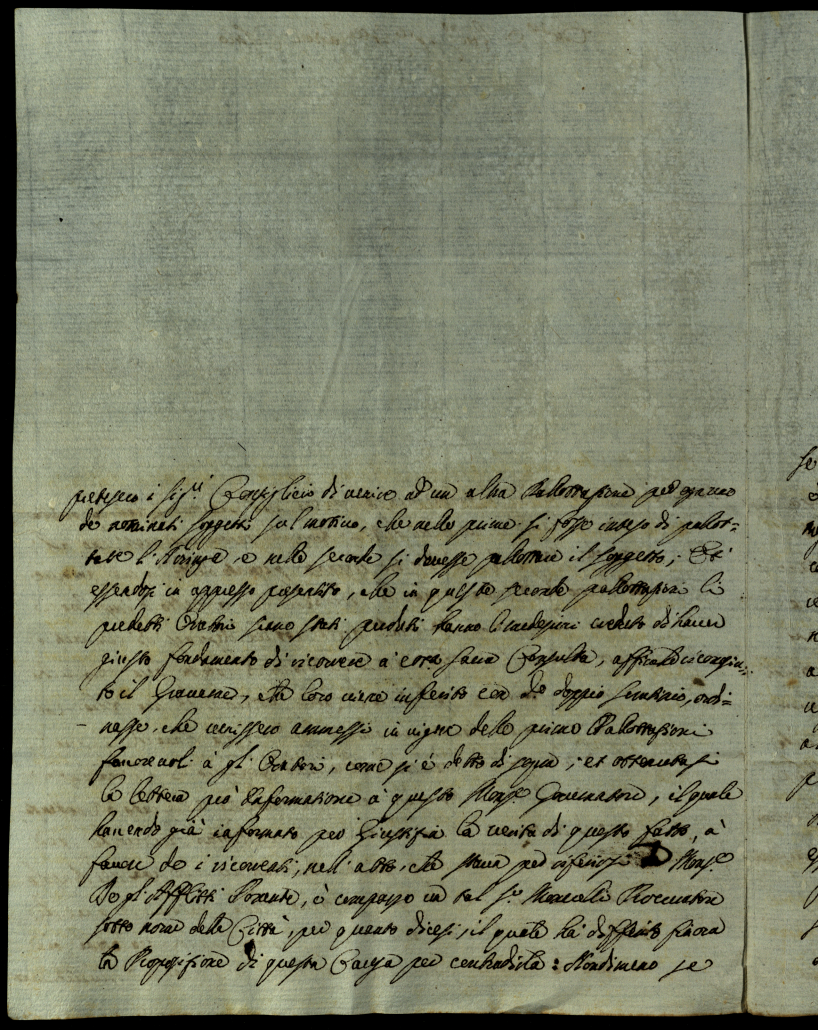 pretesero i Sig.ri Consiglieri di venire ad un altra Ballottazione per ognuno
de nominati soggetti sul motivo, che nelle prime si fosse inteso di pallot=
tare l'Aringa e nelle seconde si dovesse pallottare il soggetto; Et
essendosi in appresso, che in queste seconde pallottazioni li
predetti Oratori siano stati perduti hanno li medesimi creduto di haver
giusto fondamento di ricorrere a cotesta Sacra Consulta, affinche
to il Gravame, che loro viene inferito con do doppio, ordi=
nasse, che venissero ammessi in vigore delle prime Ballottazioni
favorevoli à gl'Oratori, come si è detto di sopra; et ottenutasi
la lettera per Informatione à questo Mons.r Governatore, il quale
havendo già informato per Giustizia la verità di questo fatto, à
favore de i ricorrenti, nell'atto, che stava per riferirsi Mons.r
De gl'Afflitti Ponente, è comparso un tal S.r Procuratore
sotto nome della Città, per quanto dicesi, il quale hà differito finora
la Proposizione di questa Causa per contradirla: Nondimeno se